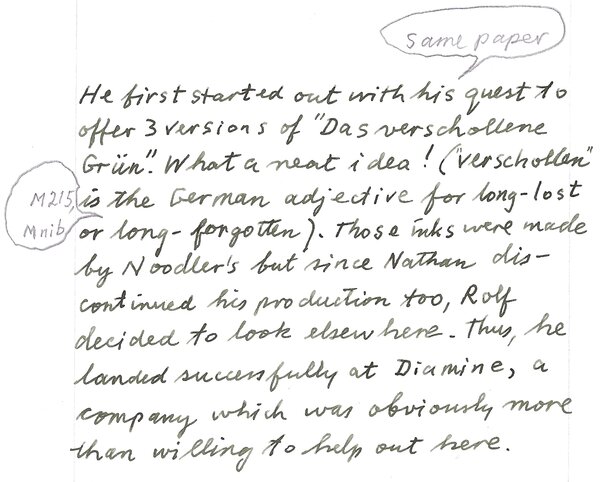 same paper
He first started out with his quest to
offer 3 versions of "Das verschollene
Grün". What a neat idea! ("verschollen"
M215,
is the German adjective for long-lost
M nib
or long-forgotten). Those inks were made
by Noodler's but since Nathan dis-
continued his production too, Rolf
decided to look elsewhere. Thus, he
landed successfully at Diamine, a
company which was obviously more
than willing to help out here.